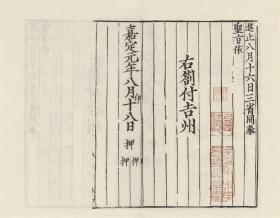 進止八月十六日三省同奉
聖旨依
右劄付吉州
嘉定元年八月十八日 押 押 押